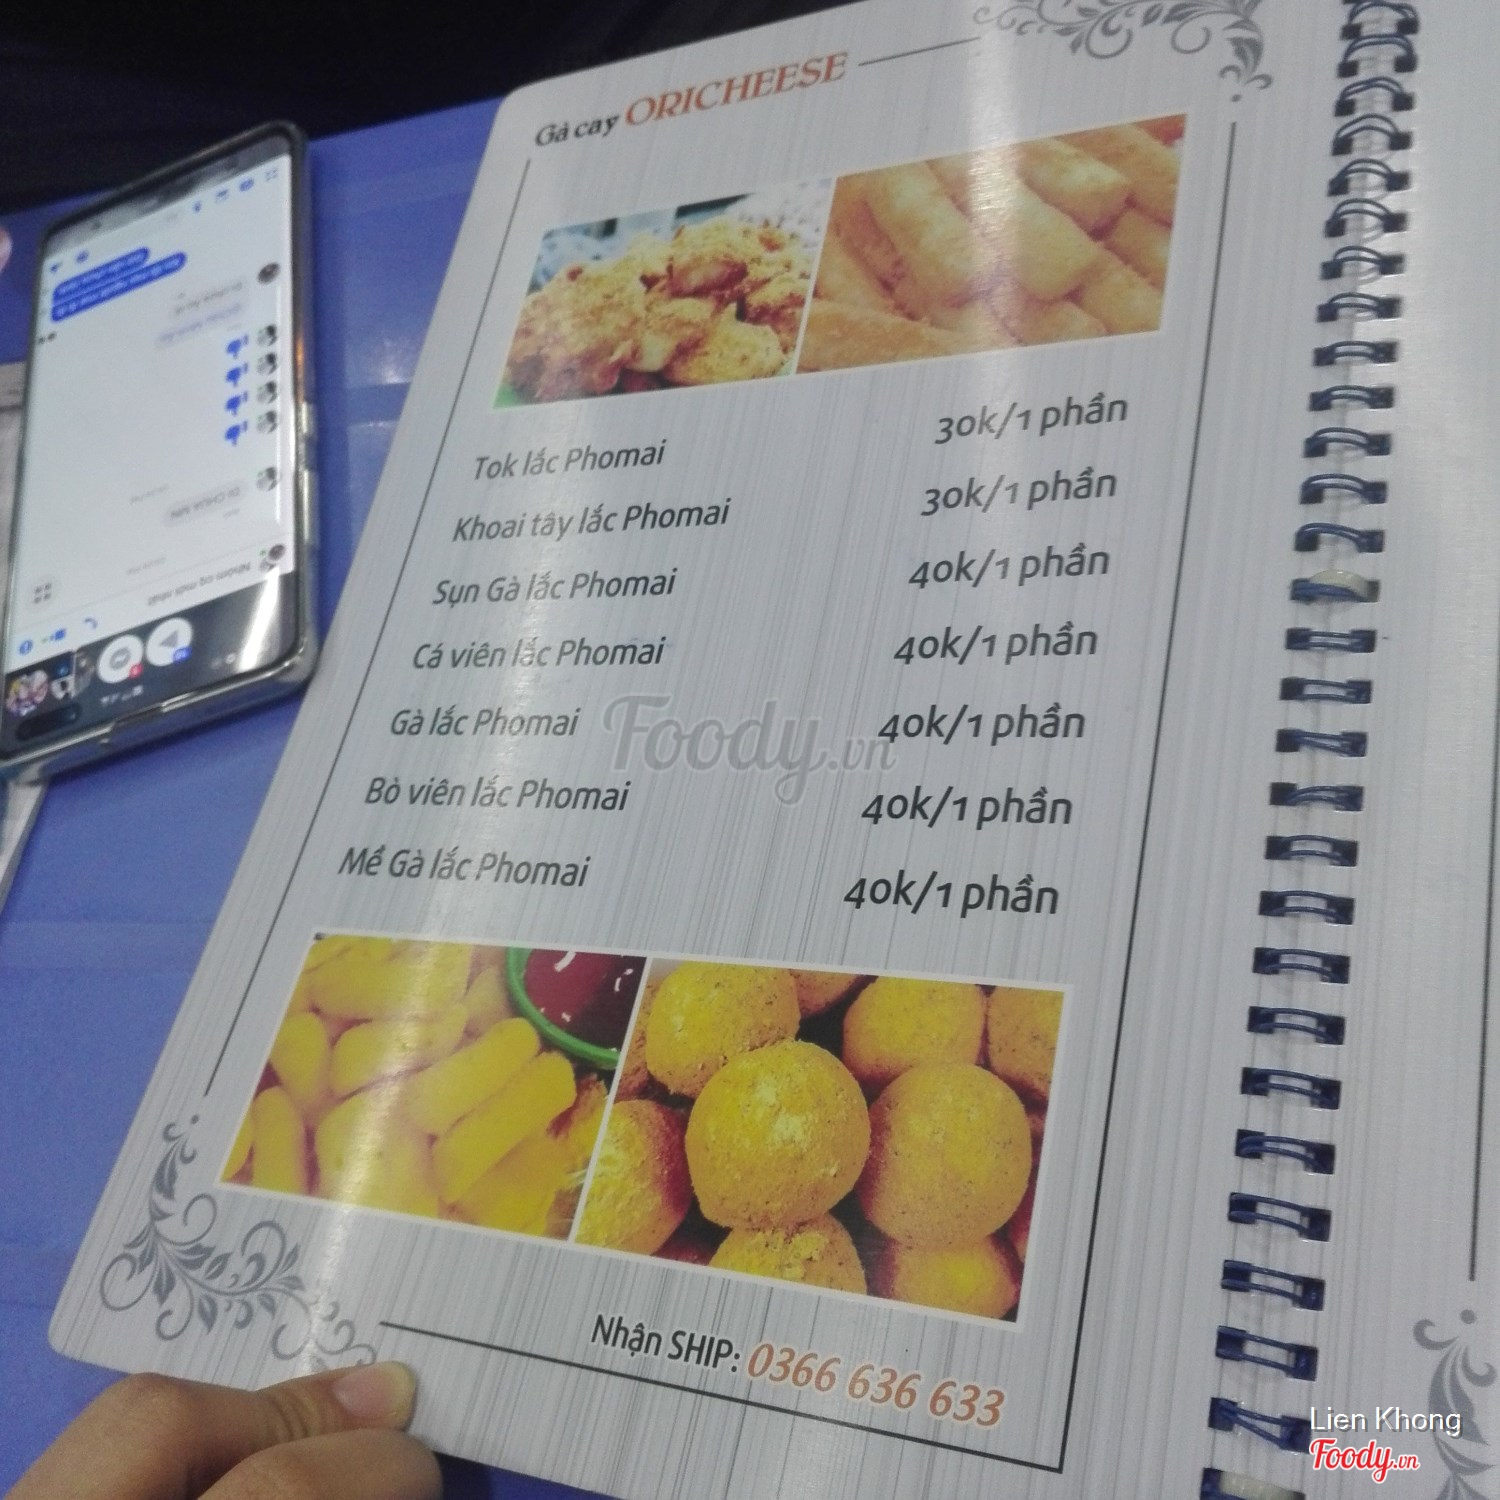 Gà cay ORICHEESE
Tok lắc Phomai 30k/1 phần
Khoai tây lắc Phomai 30k/1 phần
Sụn Gà lắc Phomai 40k/1 phần
Cá viên lắc Phomai 40k/1 phần
Gà lắc Phomai 40k/1 phần
Bò viên lắc Phomai 40k/1 phần
Mề Gà lắc Phomai 40k/1 phần
Foody.vn
Nhận SHIP: 0366 636 633
Lien Khong
Foody.vn